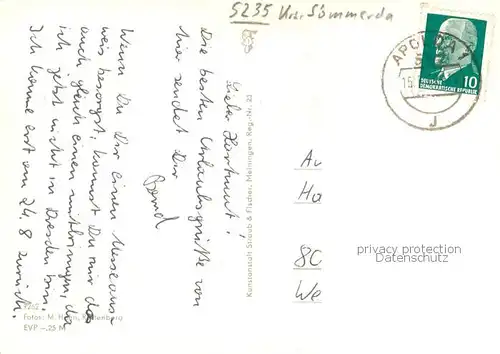 5235 Krs. Sömmerda
APOLDA
15.
J
DEUTSCHE
DEMOKRATISCHE REPUBLIK
10
Lieber Hartmut!
Die besten Urlaubsgrüße von
hier sendet Dir
Bernd
Wenn Du Dir einen Museaus-
weis besorgst, kannst Du mir da
auch gleich einen mitbringen, da
ich jetzt nicht in Dresden bin.
Ich komme erst am 24.8 zurück.
Kunstanstalt Straub & Fischer, Meiningen, Reg.-Nr. 23
Au
Ha
80
We
privacy protection
Datenschutz
Fotos: M.
EVP –.25 M